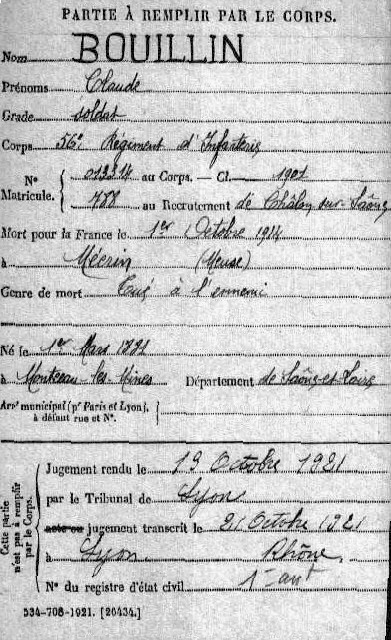 PARTIE À REMPLIR PAR LE CORPS.
Nom BOUILLIN
Prénoms Claude
Grade soldat
Corps 56e Régiment d'Infanterie
N° Matricule. 012314 au Corps. — Cl. 1901
788 au Recrutement de Châlon sur Saône
Mort pour la France le 1er Octobre 1914
à Mécrin (Meuse)
Genre de mort Tué à l'ennemi
Né le 1er Mars 1881
à Montceau-les-Mines Département de Saône-et-Loire
Arrt municipal (pr Paris et Lyon), à défaut rue et N°.
Cette partie n'est pas à remplir par le Corps.
Jugement rendu le 19 Octobre 1921
par le Tribunal de Lyon
acte ou jugement transcrit le 21 Octobre 1921
à Lyon Rhône
N° du registre d'état civil 1er art
534-708-1921. [20434.]